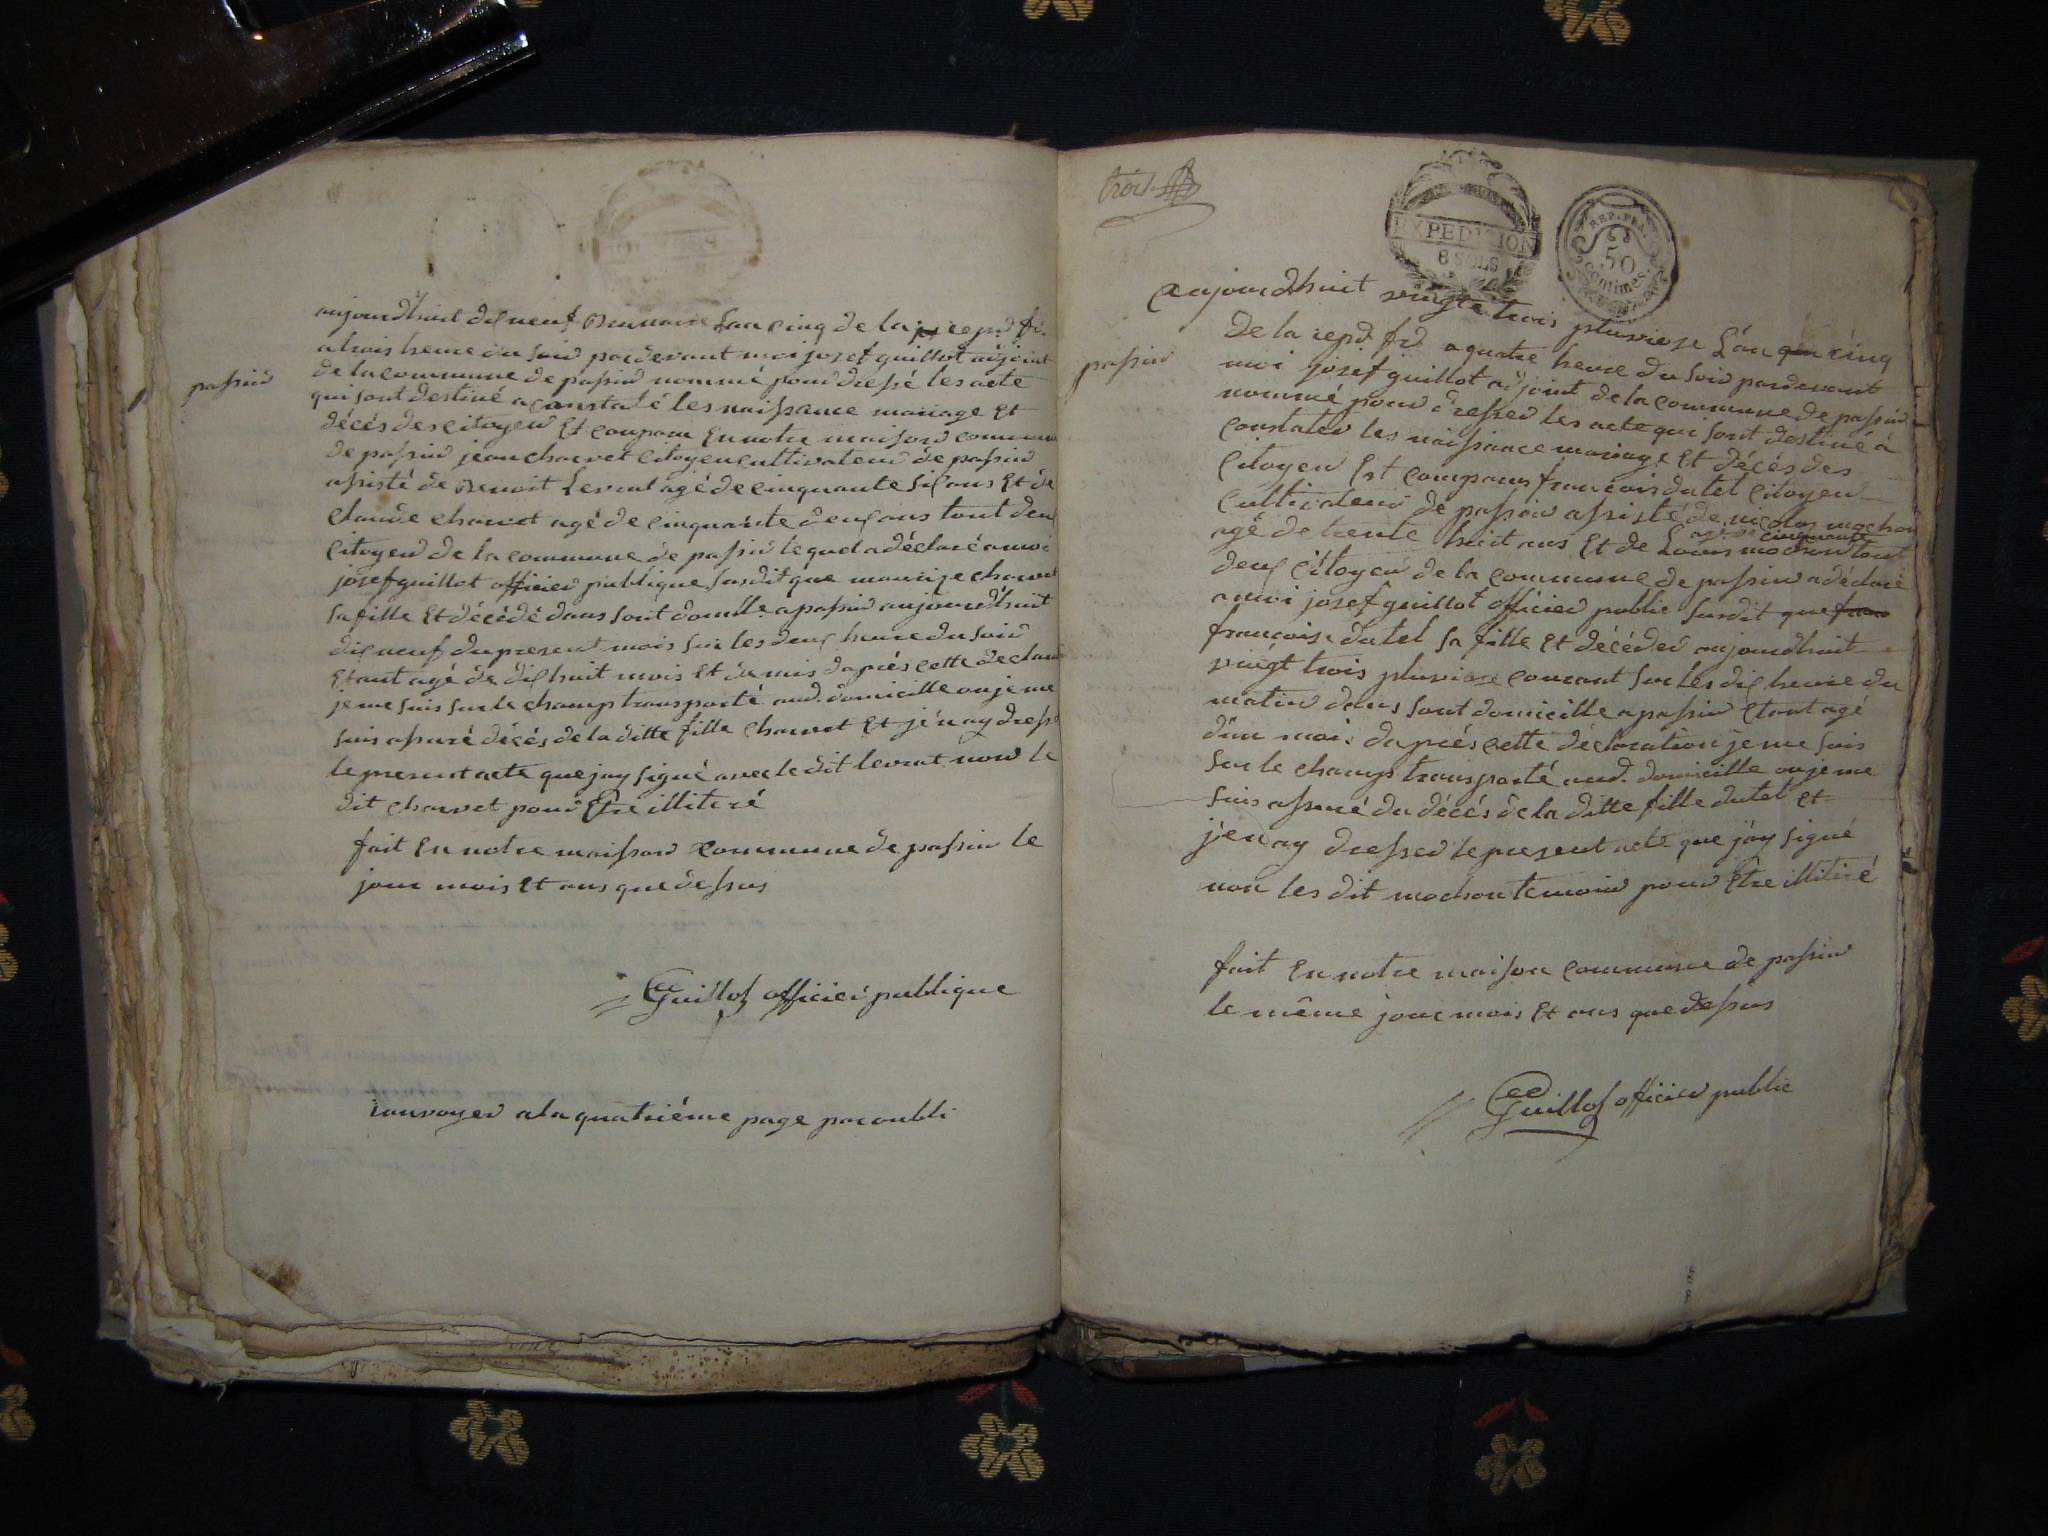 passin
aujourdhuit dix neuf Brumaire Lan cinq de la repu fr.
a trois heure du soir pardevant moi josef guillot adjoint
de la commune de passin nommé pour dressé les acte
qui sont destiné a constaté les naissance mariage Et
décés des citoyen Et comparu En notre maison commune
de passin jean charvet citoyen cultivateur de passin
assisté de Benoit Levrat agé de cinquante six ans Et de
claude charvet agé de cinquante deux ans tout deux
citoyen de la commune de passin lequel a déclaré a moi
josef guillot officier publique susdit que maurize charvet
sa fille Et décédé dans sont domile a passin aujourdhuit
dix neuf du present mois sur les deux heure du soir
Etant agé de dix huit mois Et demis daprés cette declara
je me suis sur le champs transporté aud. domicille ou je me
suis assuré décés de la ditte fille charvet Et jén ay dressé
le present acte que jay signé avec le dit levrat non le
dit charvet pour Etre illitéré
fait En notre maisson commune de passin le
jour mois Et ans que dessus
Guillot officier publique
ranvoyer a la quatriéme page par oubli
trois
EXPEDITION
8 SOLS
REP. FRA.
50
centimes.
passin
aujourdhuit vingte trois pluviose L'an cinq
De la repu fr a quatre heure du soir pardevant
moi josef guillot adjoint de la commune de passin
nommé pour dresser les acte qui sont destiné à
constater les naissance mariage Et décés des
citoyen Est comparus francois dutel citoyen
cultivateur de passin assisté de nicolas mochon
agé de trente huit ans Et de Louis mochon agé de cinquante tout
deux citoyen de la commune de passin a déclaré
a moi josef guillot officier public susdit que fran
francoise dutel sa fille Et décéder aujourdhuit
vingt trois pluviose courant sur les dix heure du
matin dans sont domicille a passin Etant agé
d'un mois daprés cette déclaration je me suis
sur le champs transporté aud. domicille ou je me
suis assuré du décés de la ditte fille dutel Et
j'en ay dresser le present acte que j'ay signé
non les dit mochon temoin pour Etre illitéré
fait En notre maison commune de passin
le même jour mois Et ans que dessus
Guillot officier public